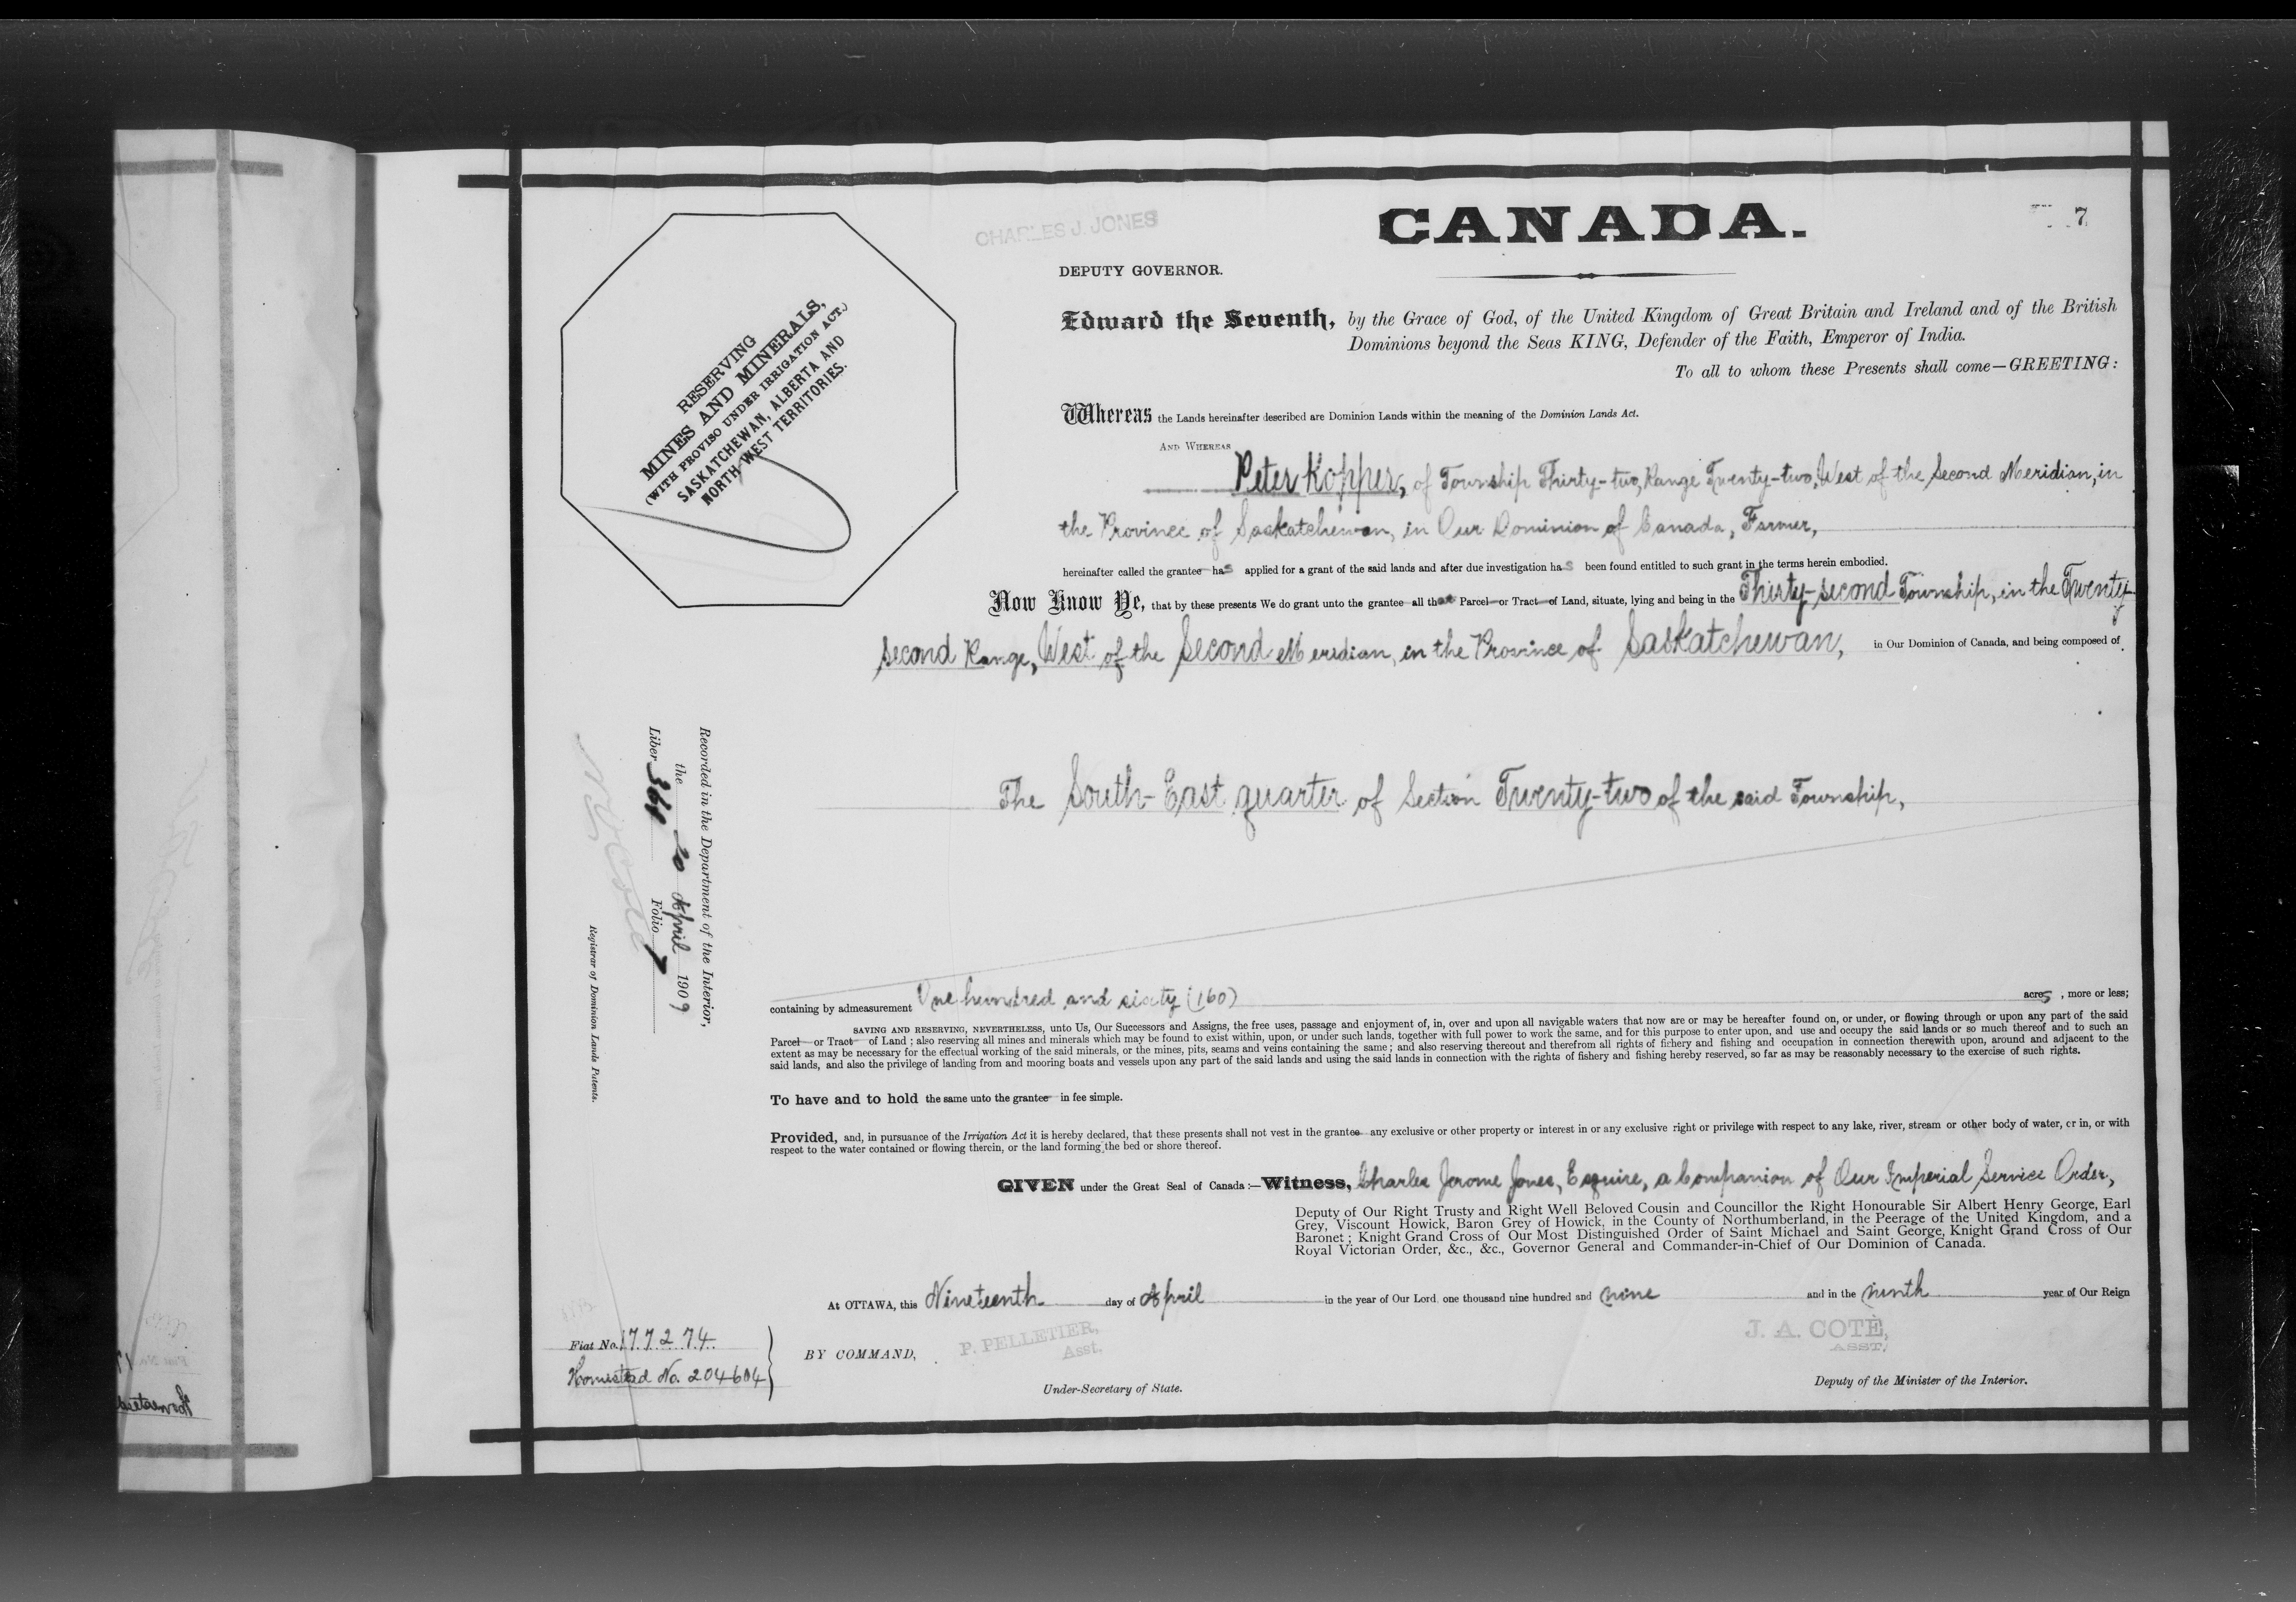 CANADA.
7
CHARLES J. JONES
DEPUTY GOVERNOR.
RESERVING
MINES AND MINERALS,
(WITH PROVISO UNDER IRRIGATION ACT.)
SASKATCHEWAN, ALBERTA AND
NORTH WEST TERRITORIES.
Edward the Seventh, by the Grace of God, of the United Kingdom of Great Britain and Ireland and of the British
Dominions beyond the Seas KING, Defender of the Faith, Emperor of India.
To all to whom these Presents shall come—GREETING:
Whereas the Lands hereinafter described are Dominion Lands within the meaning of the Dominion Lands Act.
AND WHEREAS
Peter Kopper, of Township Thirty-two, Range Twenty-two, West of the Second Meridian, in
the Province of Saskatchewan, in Our Dominion of Canada, Farmer,
hereinafter called the grantee has applied for a grant of the said lands and after due investigation has been found entitled to such grant in the terms herein embodied.
Now Know Ye, that by these presents We do grant unto the grantee all that Parcel or Tract of Land, situate, lying and being in the Thirty-second Township, in the Twenty-
second Range, West of the Second Meridian, in the Province of Saskatchewan, in Our Dominion of Canada, and being composed of
The South-East quarter of Section Twenty-two of the said Township,
Recorded in the Department of the Interior,
the 20 April 1909
Liber Folio 7
N O Coté
Registrar of Dominion Lands Patents.
containing by admeasurement One hundred and sixty (160) acres, more or less;
SAVING AND RESERVING, NEVERTHELESS, unto Us, Our Successors and Assigns, the free uses, passage and enjoyment of, in, over and upon all navigable waters that now are or may be hereafter found on, or under, or flowing through or upon any part of the said
Parcel or Tract of Land; also reserving all mines and minerals which may be found to exist within, upon, or under such lands, together with full power to work the same, and for this purpose to enter upon, and use and occupy the said lands or so much thereof and to such an
extent as may be necessary for the effectual working of the said minerals, or the mines, pits, seams and veins containing the same; and also reserving thereout and therefrom all rights of fichery and fishing and occupation in connection therewith upon, around and adjacent to the
said lands, and also the privilege of landing from and mooring boats and vessels upon any part of the said lands and using the said lands in connection with the rights of fishery and fishing hereby reserved, so far as may be reasonably necessary to the exercise of such rights.
To have and to hold the same unto the grantee in fee simple.
Provided, and, in pursuance of the Irrigation Act it is hereby declared, that these presents shall not vest in the grantee any exclusive or other property or interest in or any exclusive right or privilege with respect to any lake, river, stream or other body of water, or in, or with
respect to the water contained or flowing therein, or the land forming the bed or shore thereof.
GIVEN under the Great Seal of Canada:—Witness, Charles Jerome Jones, Esquire, a Companion of Our Imperial Service Order,
Deputy of Our Right Trusty and Right Well Beloved Cousin and Councillor the Right Honourable Sir Albert Henry George, Earl
Grey, Viscount Howick, Baron Grey of Howick, in the County of Northumberland, in the Peerage of the United Kingdom, and a
Baronet; Knight Grand Cross of Our Most Distinguished Order of Saint Michael and Saint George, Knight Grand Cross of Our
Royal Victorian Order, &c., &c., Governor General and Commander-in-Chief of Our Dominion of Canada.
At OTTAWA, this Nineteenth day of April in the year of Our Lord, one thousand nine hundred and nine and in the ninth year of Our Reign
Fiat No. 177274.
Homestead No. 204604
BY COMMAND,
P. PELLETIER,
Asst.
Under-Secretary of State.
J. A. COTÉ,
ASST.
Deputy of the Minister of the Interior.